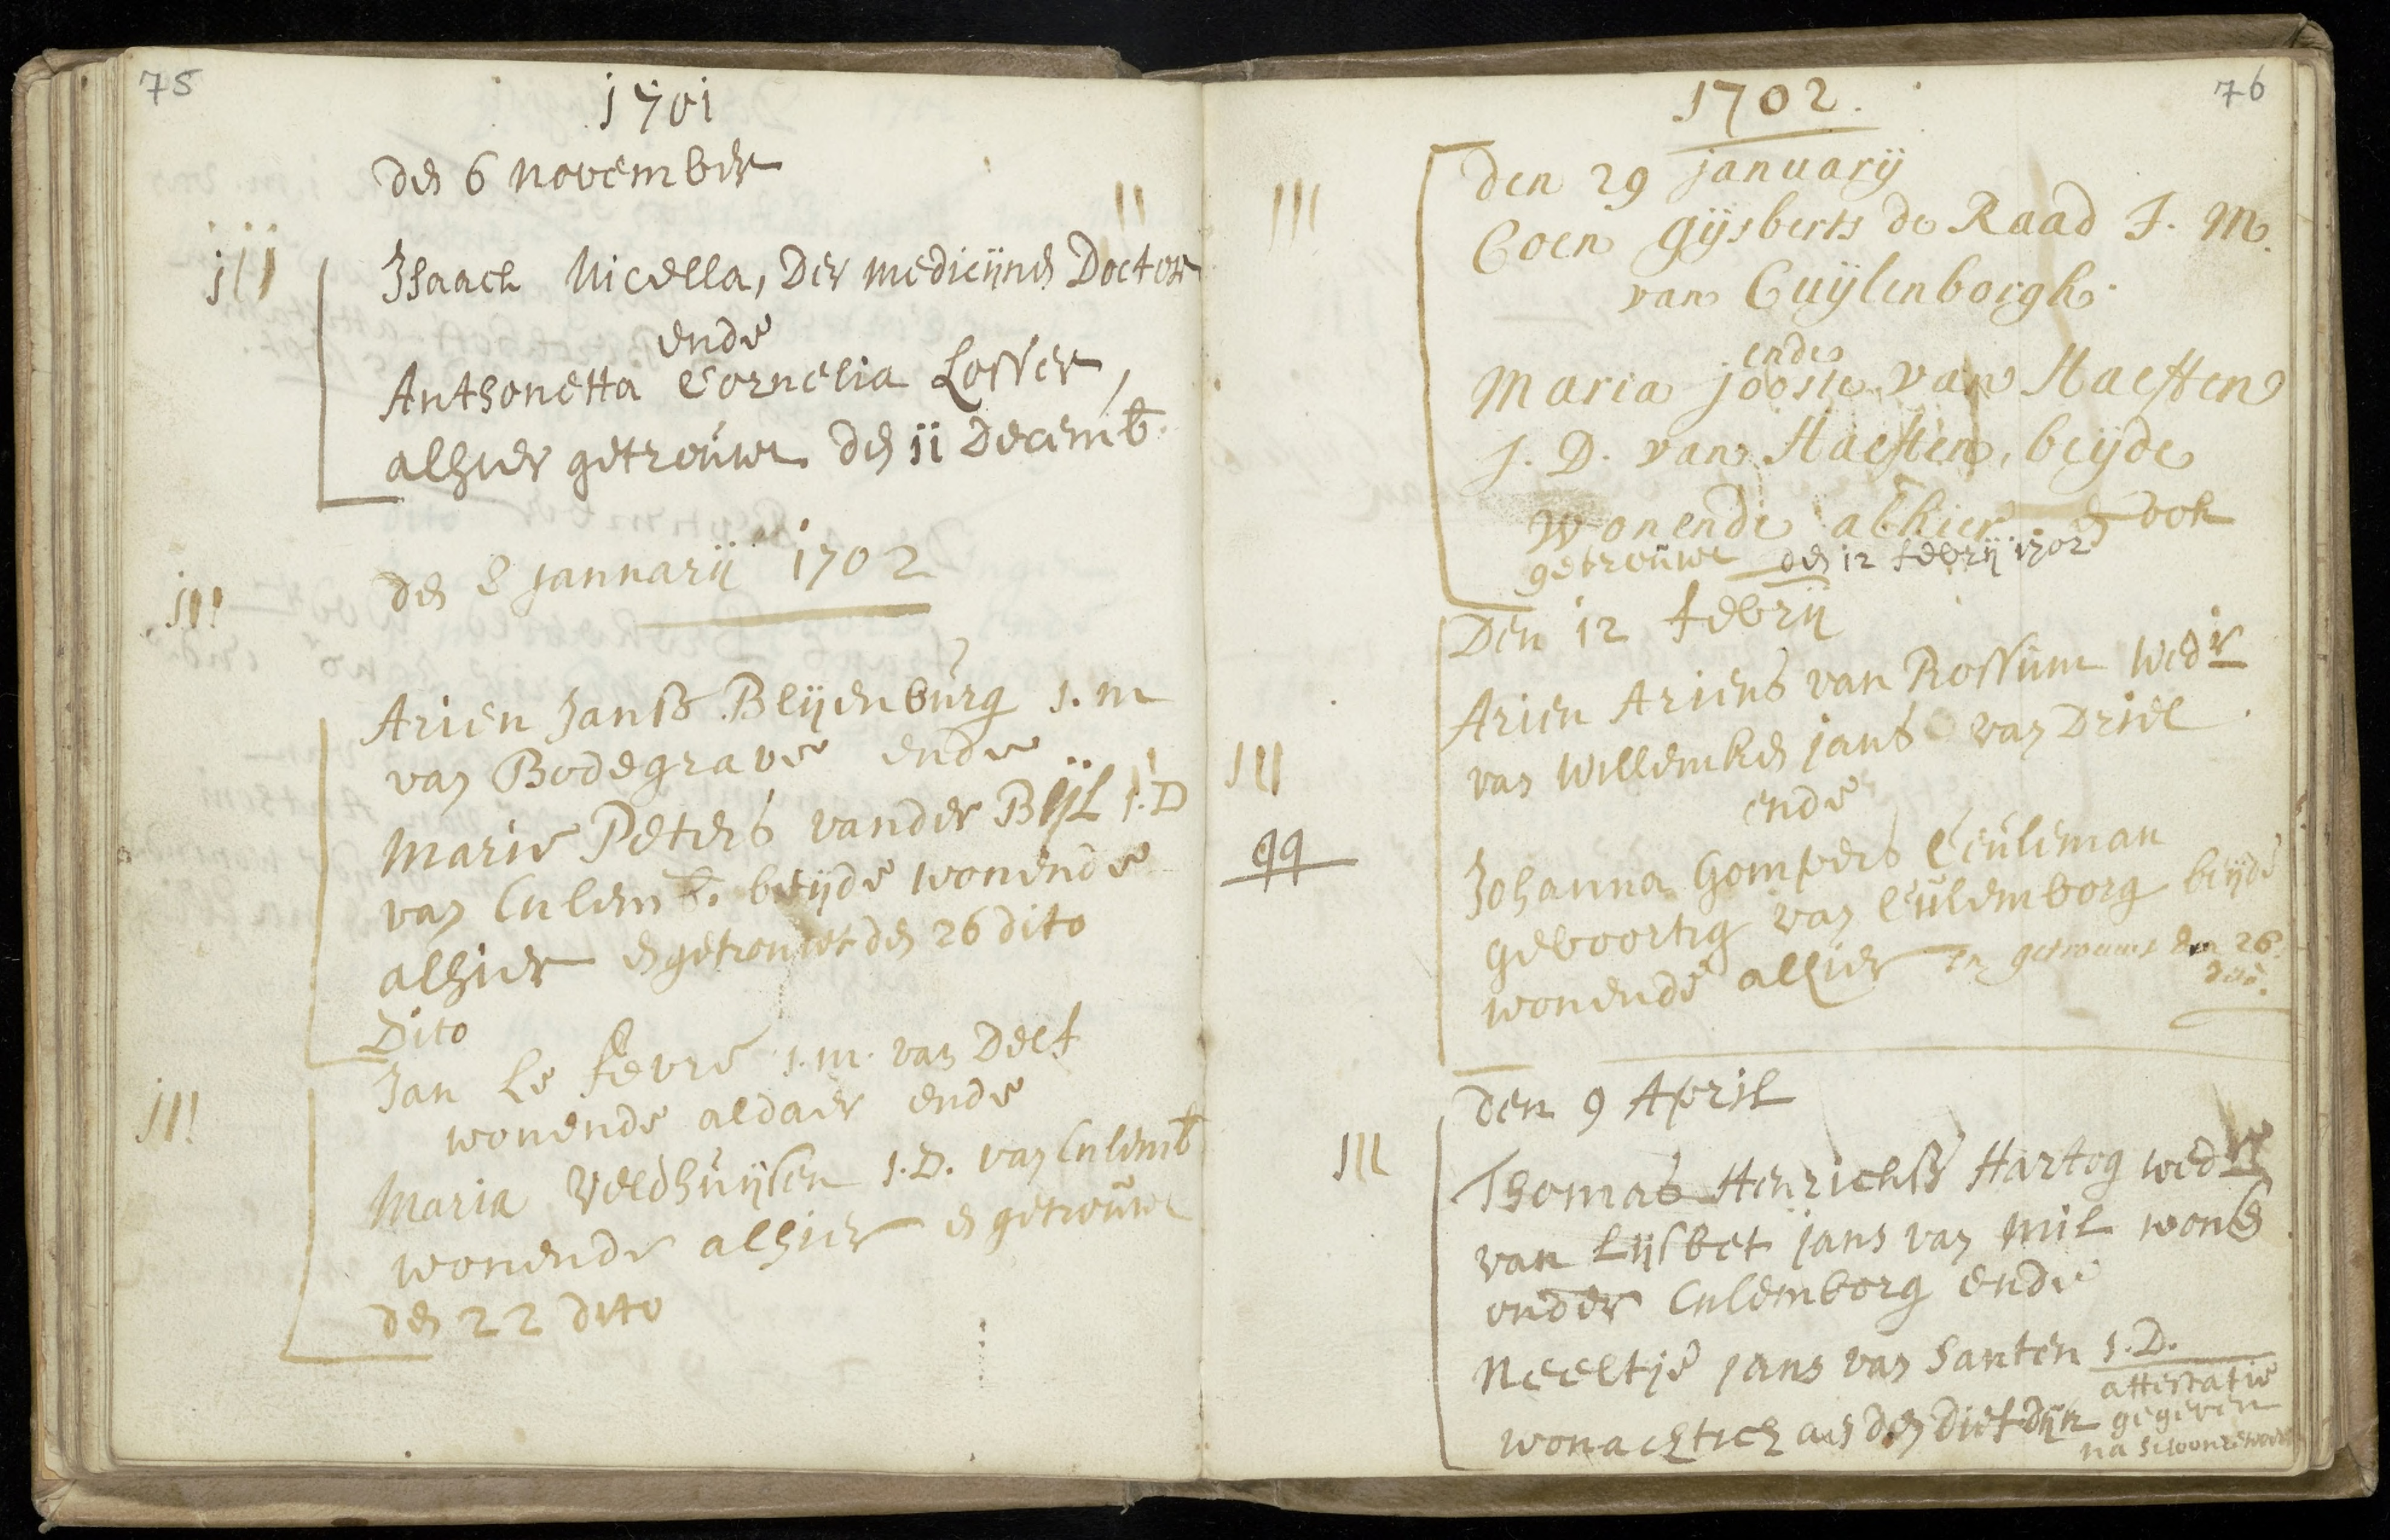 75
1701
den 6 november
jii
Isaack Nicella, Der medicijnen Doctor
ende
Anthonetta Cornelia Losser,
alhier getrouwt den 11 Decemb.
den 8 januarij 1702
jii
Arien Janss Bleijenburg j.m
van Bodegrave ende
Marie Peters vander Bijl j.D
van Culemb. beijde wonende
alhier en getrouwt den 26 dito
Dito
Jan le fevre j.m. van Delf
jii
wonende aldaer ende
Maria Veldhuijsen j.D. van Culemb
wonende alhier en getrouwt
den 22 dito
76
1702.
den 29 januarij
III
Coen Gijsberts de Raad J. M.
van Cuijlenborgh.
ende
Maria jooste van Haeften
J. D. van Haeften, beijde
wonende alhier. en ook
getrouwt den 12 febrij 1702
Den 12 febrij
Arien Ariens van Rossum wedr
van Willemken jans van Driel
III
ende
99
Johanna Gompers Ceuleman
geboortig van Culemborg beijde
wonende alhier en getrouwt den 26
dito.
den 9 April
III
Thomas Henrichss Hartog wedr
van Lijsbet jans van Mil wond
onder Culemborg ende
Neeltje jans van Santen j.D.
attestatie
wonachtich aen den Diefdijk gegeven
na Schoonrewoert